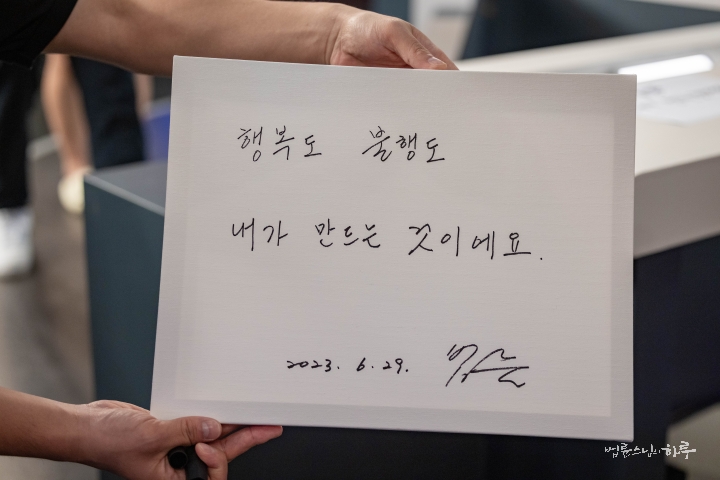 행복도 불행도
내가 만드는 것이에요.
2023. 6. 29. 법륜
법륜스님의 하루